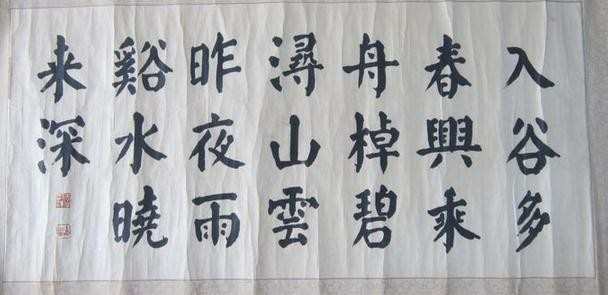 入谷多
春興乘
舟棹碧
潯山雲
昨夜雨
谿水曉
来深